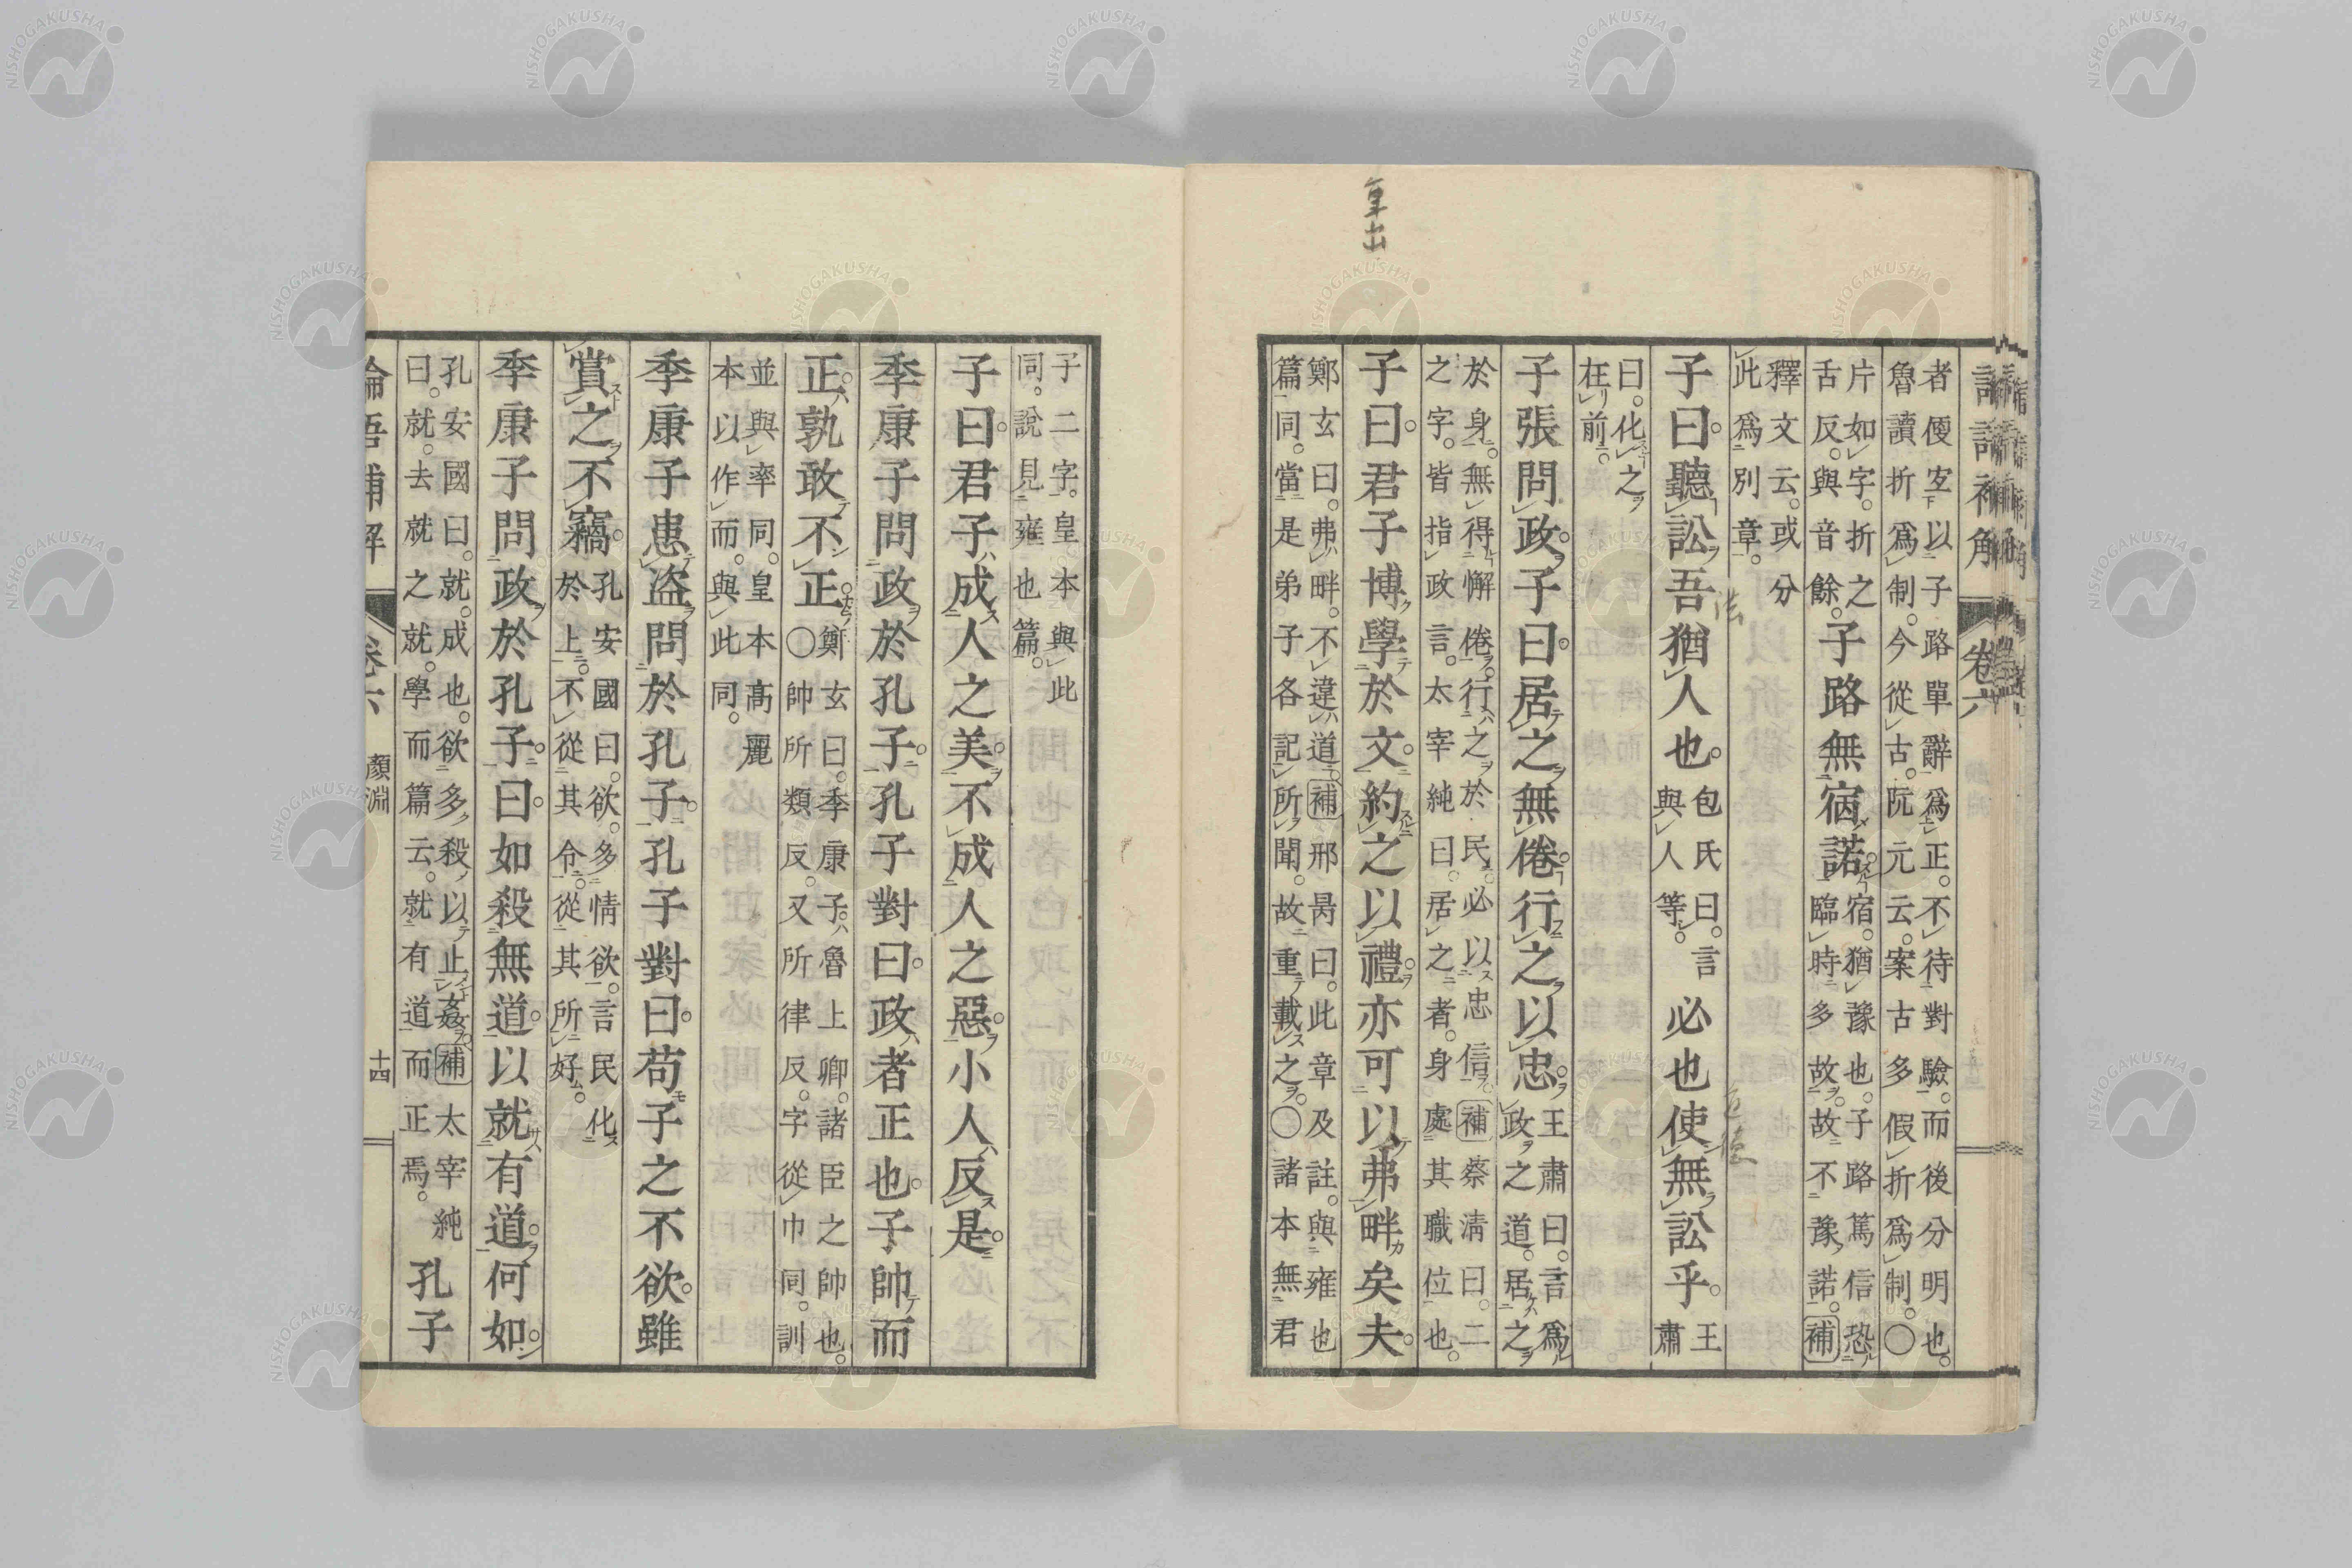 者便定以子路單辭爲正。不待對驗。而後分明也。
魯讀折爲制。今從古。阮元云。案古多假折爲制。〇
片如字。折之
舌反。與音餘。
子路無宿諾。
宿。猶豫也。子路篤信恐
臨時多故。故不豫諾。補
釋文云。或分
此爲別章。
子曰。聽訟。吾猶人也。
包氏曰。言
與人等。
必也使無訟乎。
王
肅
曰。化之
在前。
子張問政。子曰。居之無倦。行之以忠。
王肅曰。言爲
政之道。居之
於身。無得懈倦。行之於民。必以忠信。補蔡淸曰。二
之字。皆指政言。太宰純曰。居之者。身處其職位也。
子曰。君子博學於文。約之以禮。亦可以弗畔矣夫。
鄭玄曰。弗畔。不違道。補邢昺曰。此章及註。與雍也
篇同。當是弟子各記所聞。故重載之。〇諸本無君
子二字。皇本與此
同。說見雍也篇。
子曰。君子成人之美。不成人之惡。小人反是。
季康子問政於孔子。孔子對曰。政者正也。子帥而
正。孰敢不正。
鄭玄曰。季康子。魯上卿。諸臣之帥也。
〇帥所類反。又所律反。字從巾同。訓
並與率同。皇本高麗
本以作而。與此同。
季康子患盜。問於孔子。孔子對曰。苟子之不欲。雖
賞之不竊。
孔安國曰。欲。多情欲。言民化
於上。不從其令。從其所好。
季康子問政於孔子。曰。如殺無道。以就有道。何如。
孔安國曰。就。成也。欲多殺以止姦。補太宰純
曰。就。去就之就。學而篇云。就有道而正焉。
孔子
論語補解
卷六
顏淵
十四